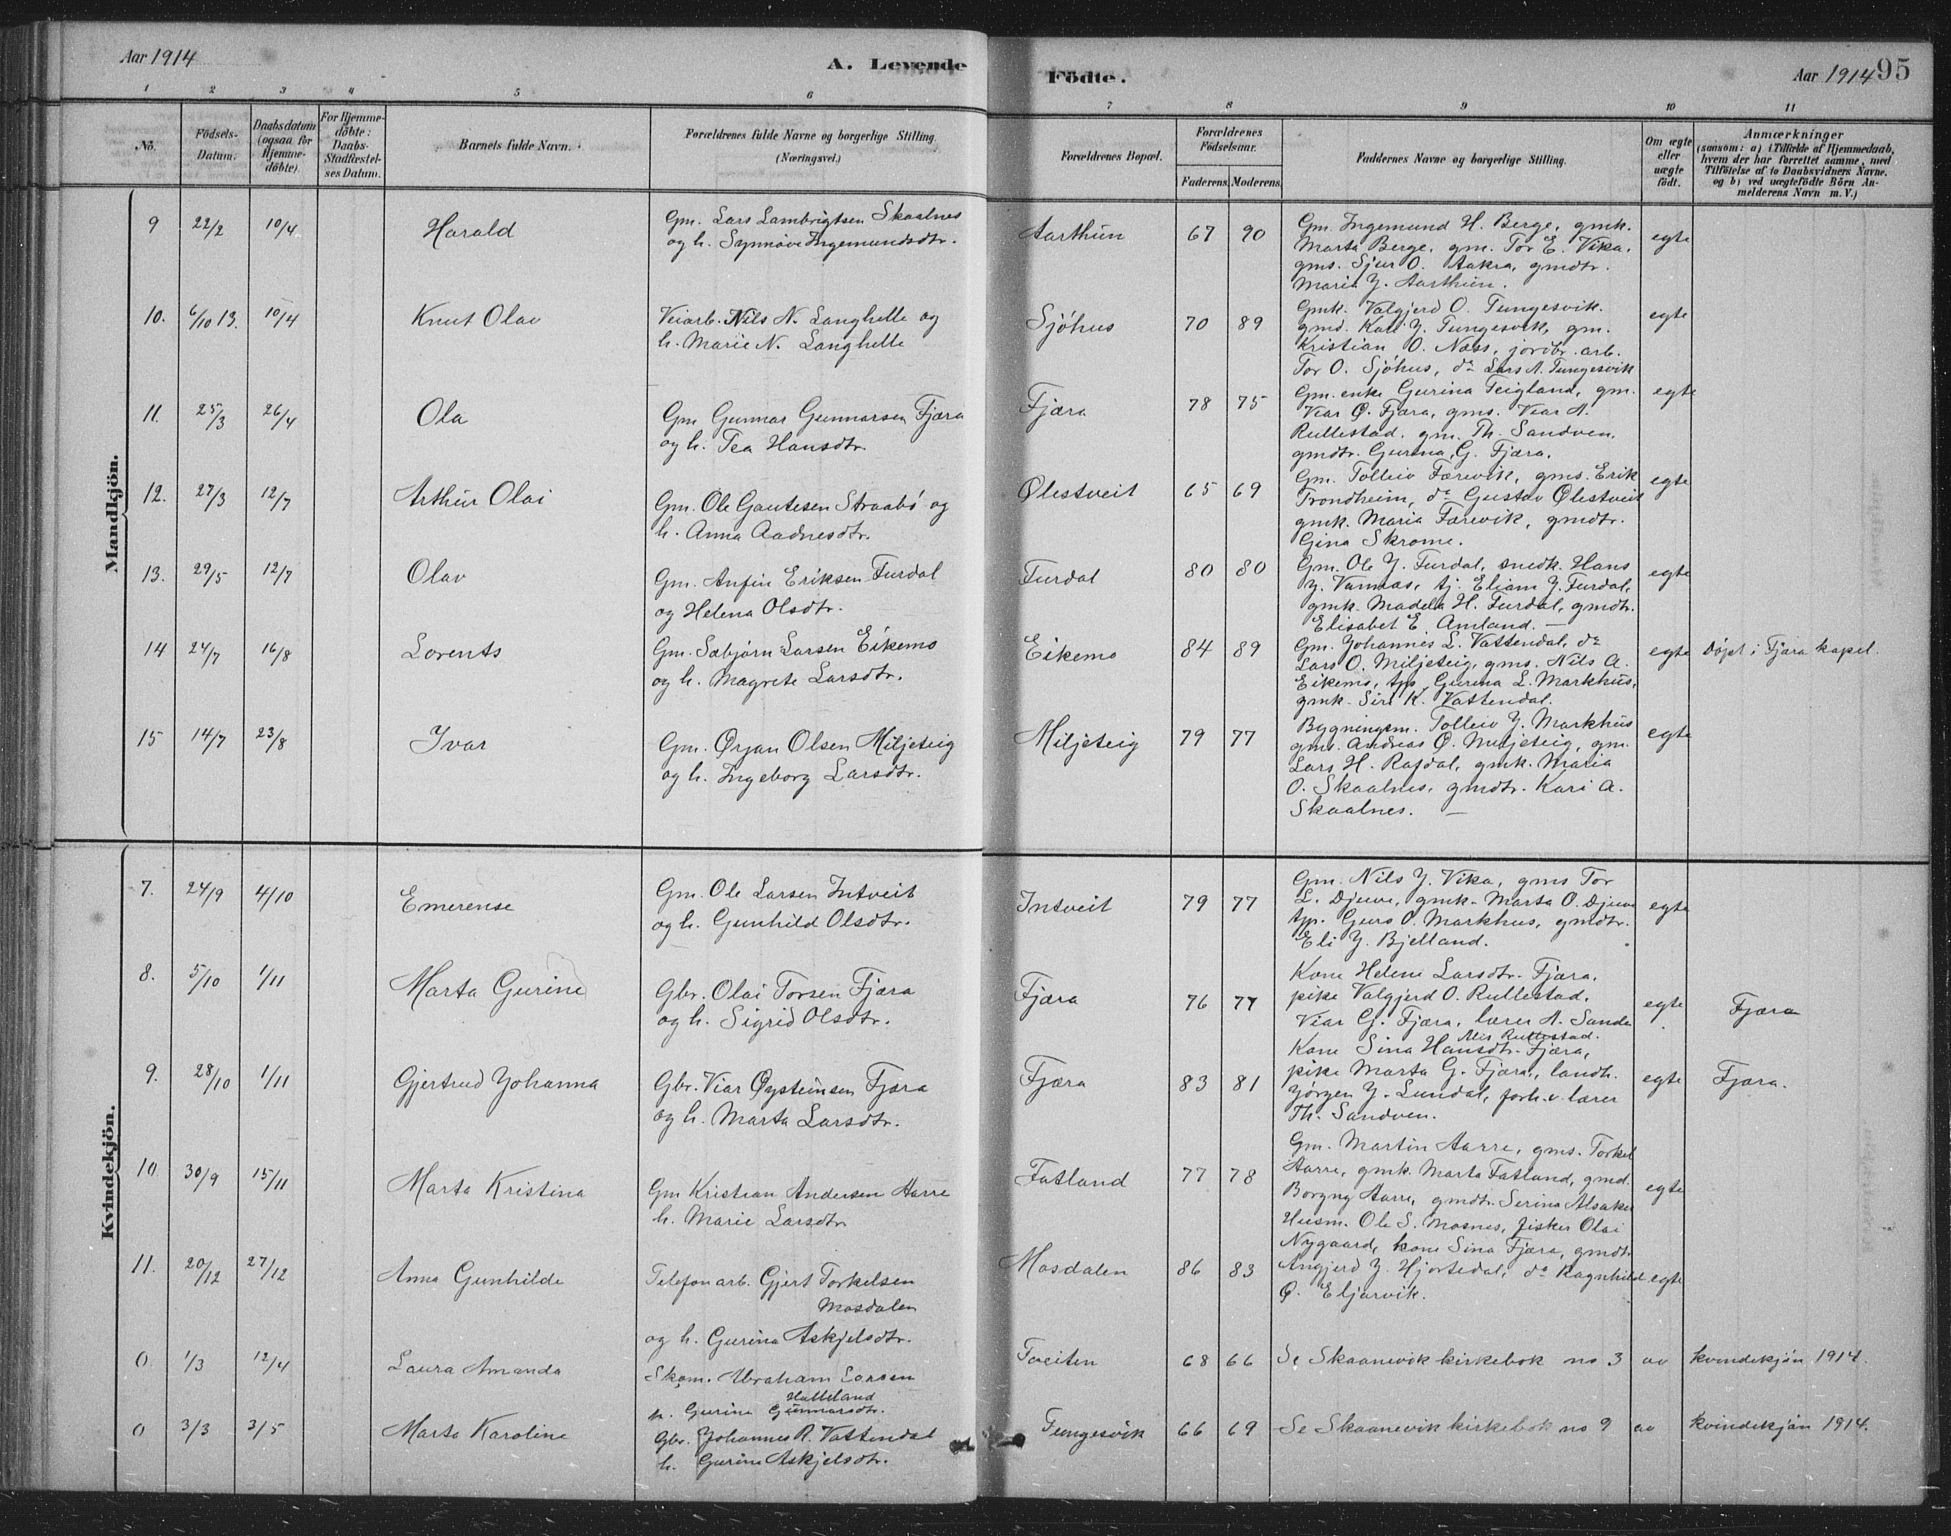 Aar 1914
A. Levende Födte.
Aar 1914 95
1 2 3 4 5 6 7 8 9 10 11
No.
Födsels-Datum.
Daabsdatum (ogsaa for Hjemme-döbte)
For Hjemme-döbte: Daabs-Stadfæstel-ses Datum.
Barnets fulde Navn.
Forældrenes fulde Navne og borgerlige Stilling. (Næringsvei.)
Forældrenes Bopæl.
Forældrenes Födselsaar.
Faderens. Moderens.
Faddernes Navne og borgerlige Stilling.
Om ægte eller uægte født.
Anmærkninger
(saasom: a) i Tilfælde af Hjemmedaab,
hvem der har forrettet samme, med
Tilföielse af to Daabsvidners Navne.
og b) ved uægtefödte Börn An-
melderens Navn m. V.)
Mandkjön.
9 22/2 10/4 Harald
Gm. Lars Lambrigtsen Skaalnes
og h. Synnøve Ingemundsdtr.
Aarthun 67 90
Gm. Ingemund H. Berge, gmk.
Marta Berge, gm. Tor E. Vika,
gms. Sjur O. Aakra, gmdtr.
Maria J. Aarthun.
egte
10. 6/10 13. 10/4 Knut Olav
Veiarb. Nils N. Langhelle og
h. Marie N. Langhelle
Sjöhus 70 89
Gmk. Valgjerd O. Tungesvik.
gmd. Kari J. Tungesvik, gm.
Kristian O. Næss, jordbr. arb.
Tor O. Sjöhus, do Lars A. Tungesvik
egte
11. 25/3 26/4 Ola
Gm Gunnar Gunnarsen Fjæra
og h. Tea Hansdtr.
Fjæra 78 75
Gm. enke Gurina Teigland, gm.
Viar Ø. Fjæra, gms. Viar A.
Rullestad, gm. Th. Sandven,
gmdtr. Gurina G. Fjæra.
egte
12. 27/3 12/7 Arthur Olai
Gm. Ole Gautesen Straabø og
h. Anna Aadnesdtr.
Ølestveit 65 69
Gm. Tolleiv Færevik, gms. Erik
Trondheim, do Gustav Ølestveit
gmk. Maria Færevik, gmdtr.
Gina Skrome.
egte
13. 29/5 12/7 Olav
Gm. Anfin Eriksen Furdal
og Helena Olsdtr.
Furdal 80 80
Gm. Ole J. Furdal, snedk. Hans
J. Vannes, tj. Eliam J. Furdal,
gmk. Madela H. Furdal, gmdtr.
Elisabet E. Amland. —
egte
14 24/7 16/8 Lorents
Gm. Sæbjørn Larsen Eikemo
og h. Magrete Larsdtr.
Eikemo 84 89
Gm. Johannes L. Vattendal, do
Lars O. Miljeteig, gms. Nils A.
Eikemo, tjp. Gurina L. Markhus,
gmk. Siri K. Vattendal.
egte
Døpt i Fjæra kapel.
15 14/7 23/8 Ivar
Gm. Ørjan Olsen Miljeteig
og h. Ingeborg Larsdtr.
Miljeteig 79 77
Bygningsm. Tolleiv J. Markhus
gms. Andreas Ø. Miljeteig, gm.
Lars H. Rafdal, gmk. Maria
O. Skaalnes, gmdtr. Kari A.
Skaalnes. —
egte
Kvindekjön.
7. 24/9 4/10 Emerense
Gm. Ole Larsen Intveit
og h. Gunhild Olsdtr.
Intveit 79 77
Gm. Nils J. Vika, gms Tor
L. Djuve, gmk. Marta O. Djuve
tjp. Guro O. Markhus, gmdtr.
Eli J. Bjelland.
egte
8. 5/10 1/11 Marta Gurine
Gbr. Olai Torsen Fjæra
og h. Sigrid Olsdtr.
Fjæra 76 77
Kone Helene Larsdtr. Fjæra,
pike Valgjerd O. Rullestad,
Viar G. Fjæra, lærer A. Sande
Nils Rullestad.
egte
Fjæra
9. 28/10 1/11 Gjertrud Johanna
Gbr. Viar Øysteinsen Fjæra
og h. Marta Larsdtr.
Fjæra 83 81
Kone Sina Hansdtr. Fjæra,
pike Marta G. Fjæra, landh.
Jørgen J. Lundal, forh.v. lærer
Th. Sandven.
egte
Fjæra.
10 30/9 15/11 Marta Kristina
Gm Kristian Andersen Aarre
h. Marie Larsdtr
Fatland 77 78
Gm. Martin Aarre, gms. Torkel
Aarre, gmk. Marta Fatland, gmd.
Borgny Aarre, gmdtr. Serina Alsaker
egte
11. 20/12 27/12 Anna Gunhilde
Telefonarb. Gjert Torkelsen
Mosdalen
og h. Gurina Askjelsdtr.
Mosdalen 86 83
Husm. Ole S. Mosnes, fisker Olai
Nygaard, kone Sina Fjæra, gmdtr
Angjerd J. Hjortedal, do Ragnhild
Ø. Eljarvik.
egte
0. 1/3 12/4 Laura Amanda
Skom. Abraham Larsen
Hatteland
h. Gurine Gunnarsdtr.
Tveiten 68 66 Se Skaanevik kirkebok no 3 av kvindekjön 1914.
0 3/3 3/5 Marta Karoline
Gbr. Johannes A. Vattendal
h. Gurine Askjelsdtr.
Tungesvik 66 69 Se Skaanevik kirkebok no 9 av kvindekjön 1914.